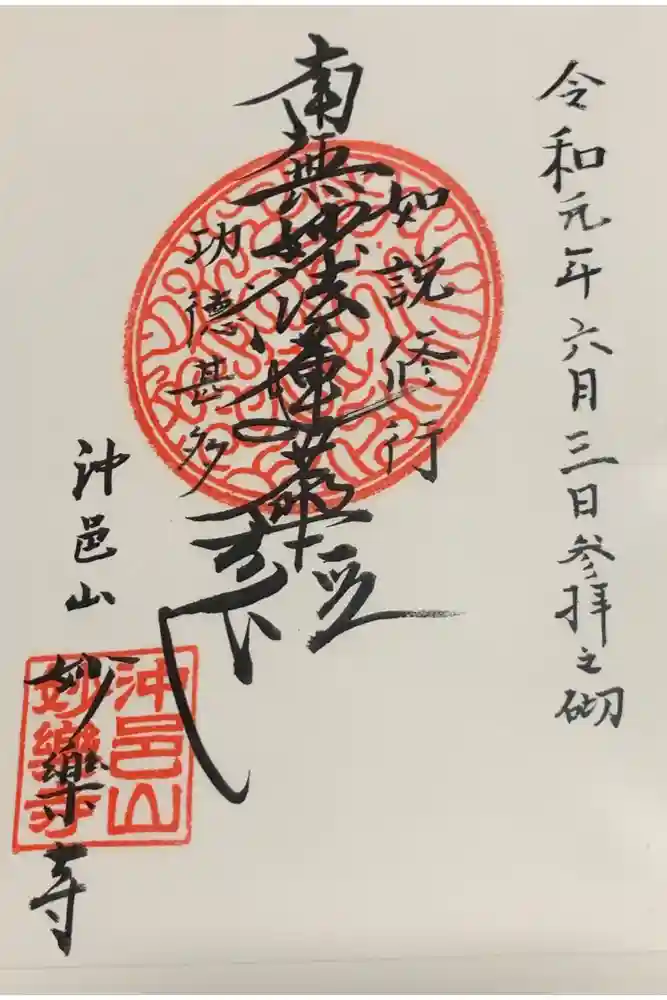 令和元年六月三日参拝之砌
如説修行
南無妙法蓮華経
功徳甚多
沖邑山
妙樂寺
沖邑山
妙樂寺